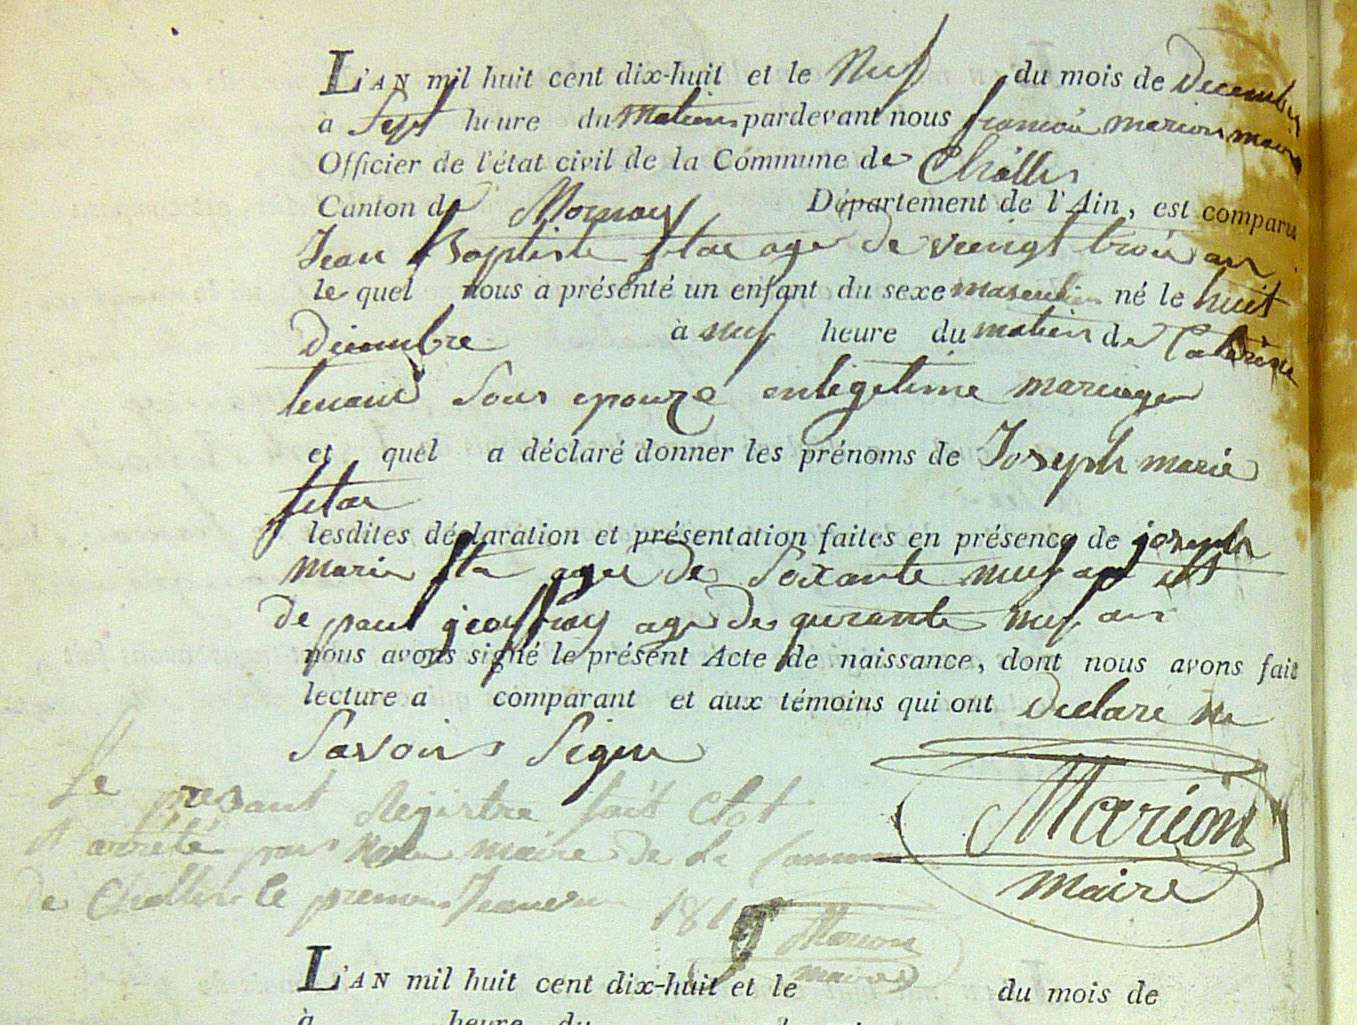 L'AN mil huit cent dix-huit et le Neuf du mois de Decembre
a Sept heure du Matiens pardevant nous francois marion maire
Officier de l'état civil de la Commune de Challes
Canton de Mornay Département de l'Ain, est comparu
Jean Baptiste age de veingt trois ans
le quel nous a présenté un enfant du sexe masculin né le huit
Décembre à neuf heure du matiens de Caterine
Sous epouze en legetime mariage
et quel a déclaré donner les prénoms de Joseph marie
lesdites déclaration et présentation faites en présence de joseph
marie age de Soixante neuf ans et
de paul geoffray age de qurante neuf ans
nous avons signé le présent Acte de naissance, dont nous avons fait
lecture a comparant et aux témoins qui ont declaré ne
Savoir Signe
Le presant Registre fait Clot
et arrété par Nous maire de La Commune
Marion
maire
de Challes le premier Janvier 181
Marion
maire
L'AN mil huit cent dix-huit et le du mois de
à heure du